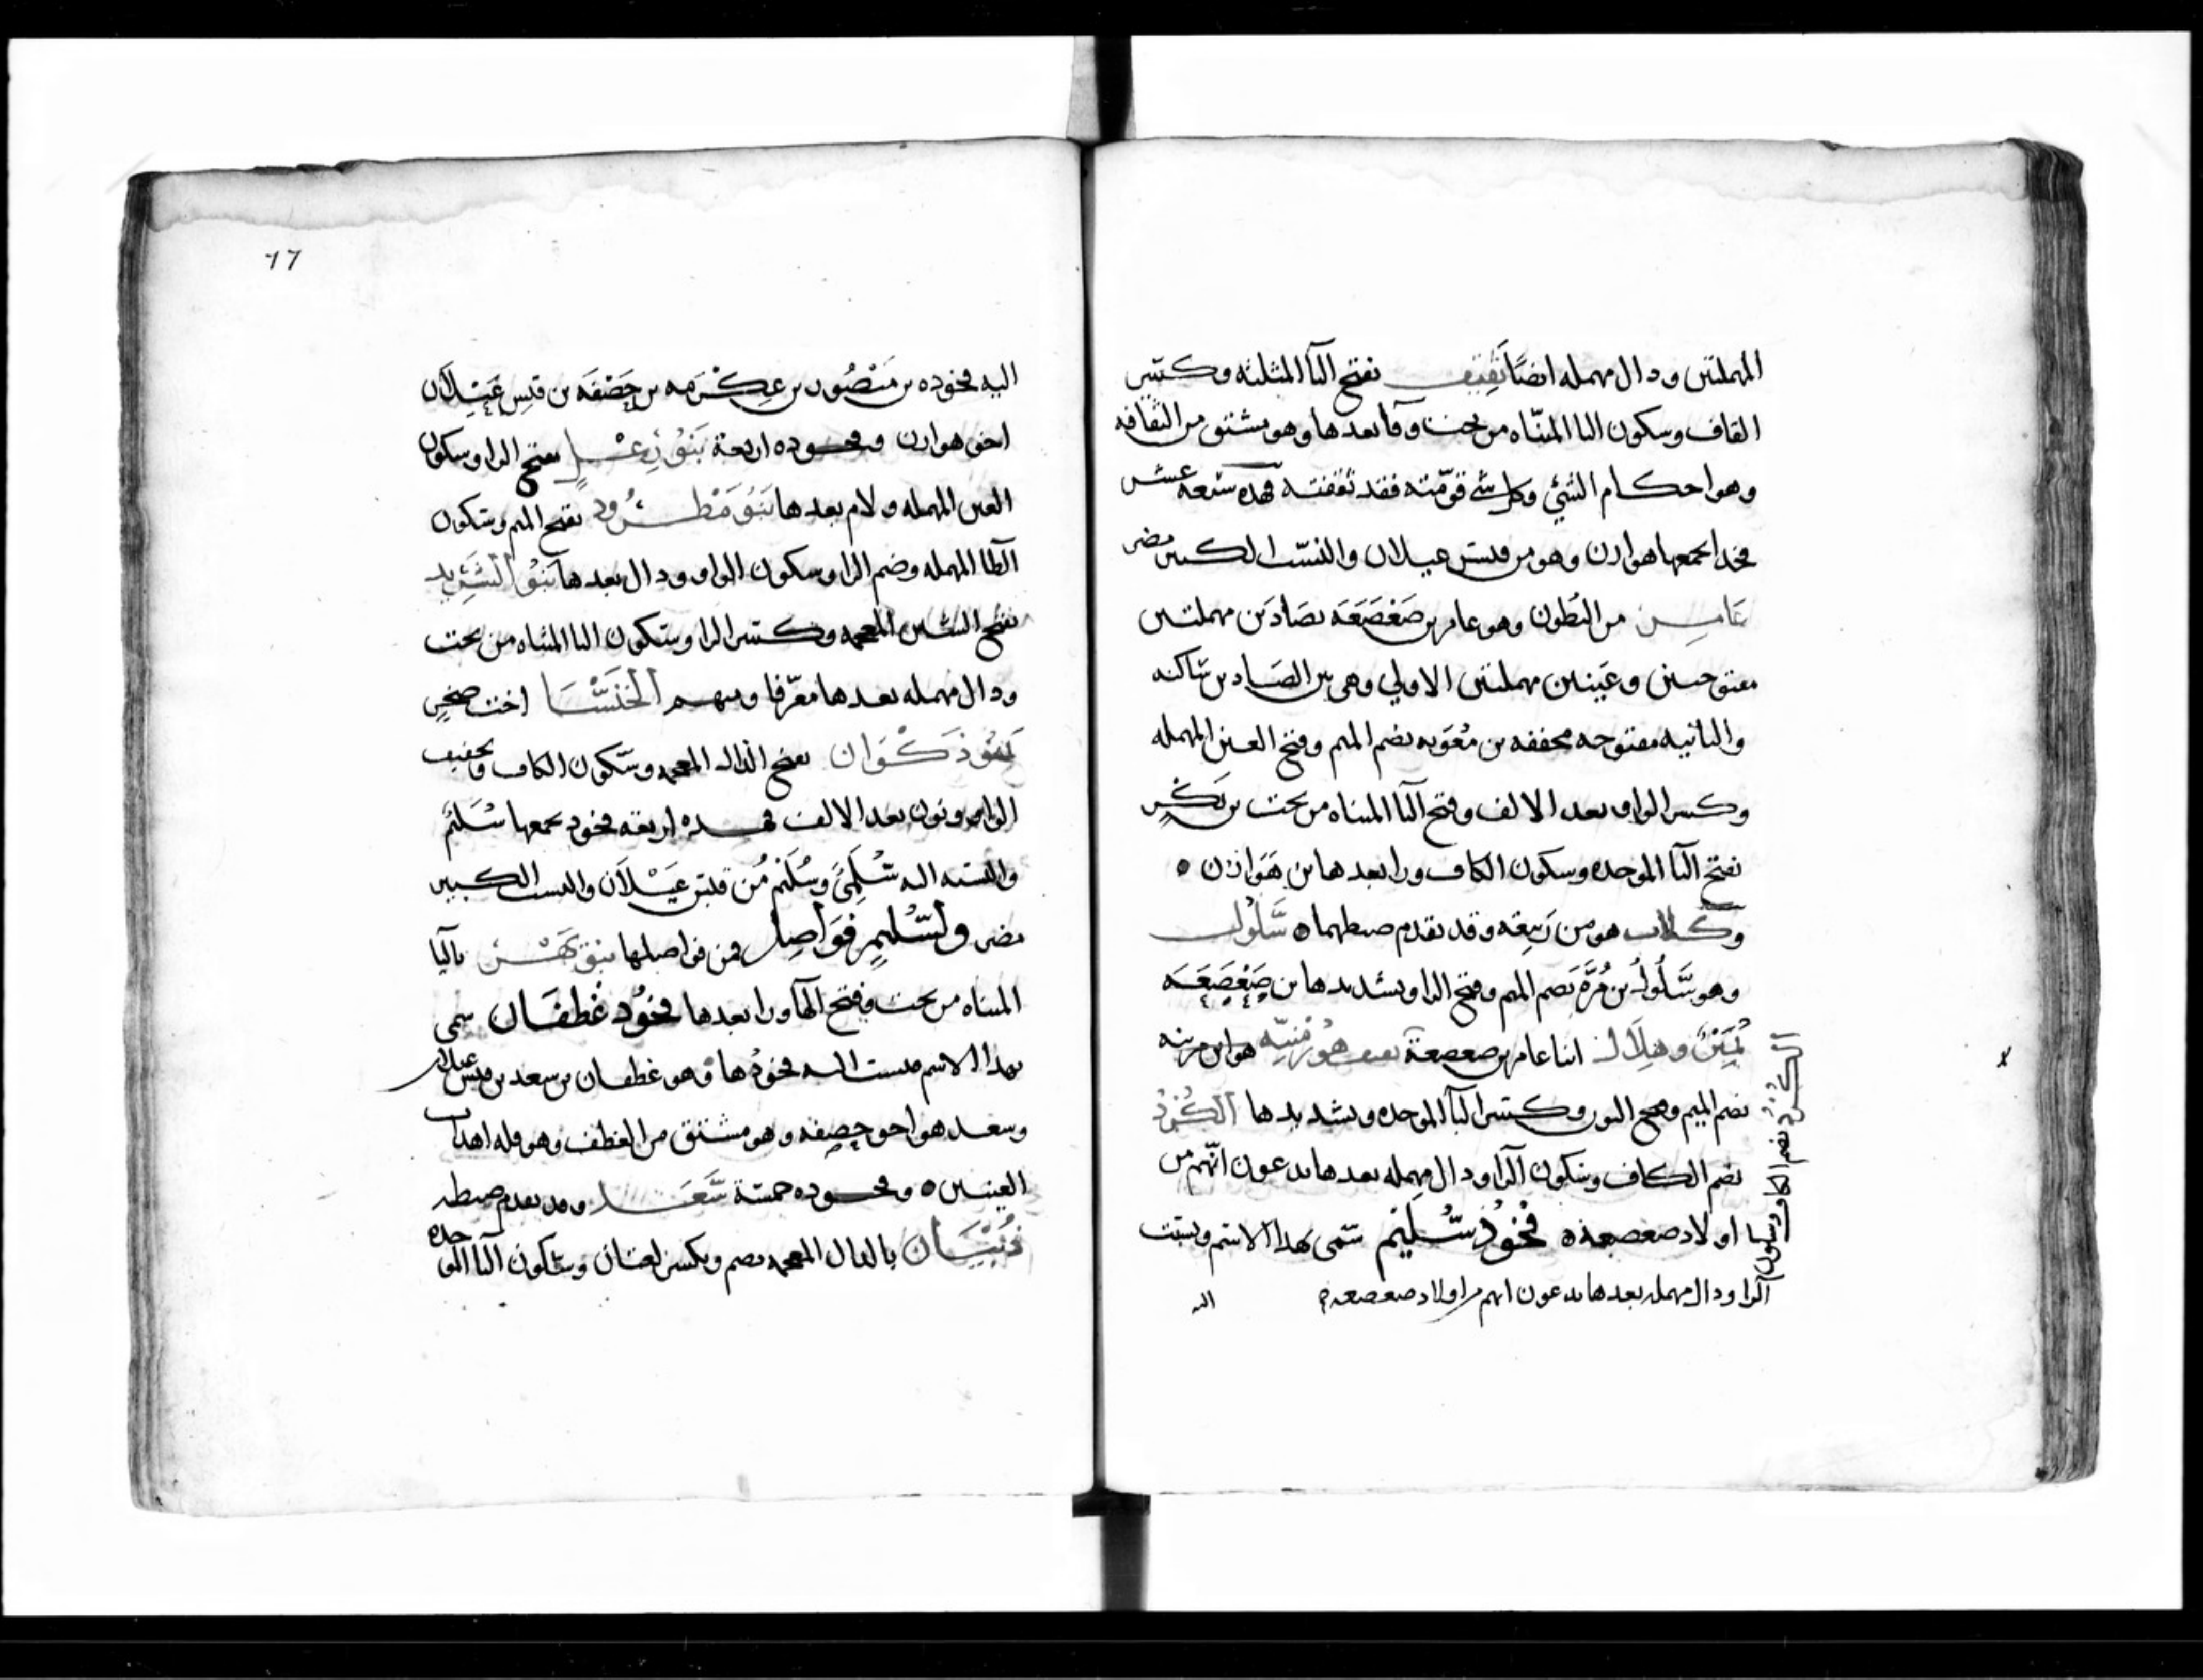 المهملتين ودال مهمله ايضا ثقيف بفتح الثا المثلثه وكسر
القاف وسكون اليا المثناه من تحت وفا بعدها وهو مشتق من الثقافه
وهو احكام الشئ وكل شي قومته فقد ثقفته فهذه سبعه عشر
فخدا يجمعها هوازن وهو من قيس عيلان والنسب الكبير مضر
عامر من البطون وهو عامر بن صعصعه بصادين مهملتين
مفتوحتين وعينين مهملتين الاولي وهي بين الصادين ساكنه
والثانيه مفتوحه مخففه بن معويه بضم الميم وفتح العين المهمله
وكسر الواو بعد الالف وفتح اليا المثناه من تحت بن بكر
بفتح البا الموحده وسكون الكاف ورا بعدها بن هوازن ٥
وكلاب هو من ربيعه وقد تقدم ضبطهما ٥ سلول
وهو سلول بن مره بضم الميم وفتح الرا وتشديدها بن صعصعه
نمير وهلال ابنا عامر بن صعصعة هو ابن
بضم الميم وفتح النون وكسر البا الموحده وتشديدها الكرد
بضم الكاف وسكون الرا ودال مهمله بعدها يدعون انهم من
اولاد صعصعه ٥ فخوذ سليم سمى بهذا الاسم ونسبت
الكرد بضم الكاف وسكون
الرا ودال مهمله بعدها يدعون انهم من اولاد صعصعه
اليه
17
اليه فخوذه بن منصور بن عكرمه بن خصفه بن قيس عيلان
اخو هوازن وفخوذه اربعة بنو رعل بفتح الرا وسكون
العين المهمله ولام بعدها بنو مطرود بفتح الميم وسكون
الطا المهمله وضم الرا وسكون الواو ودال بعدها بنو الشريد
بفتح الشين المعجمه وكسر الرا وسكون اليا المثناه من تحت
ودال مهمله بعدها معرفا ومنهم الخنسا اخت صخر
بنو ذكوان بفتح الذال المعجمه وسكون الكاف وتخفيف
الواو ونون بعد الالف فهذه اربعه فخوذ يجمعها سليم
والنسبه اليه سلمى وسليم من قيس عيلان والنسب الكبير
مضر ولسليم فواصل فمن فواصلها بنو بهز باليا
المثناه من تحت وفتح الها ورا بعدها فخوذ غطفان سمى
بهذا الاسم ونسبت اليه فخوذها وهو غطفان بن سعد بن قيس عيلان
وسعد هو اخو خصفه وهو مشتق من الغطف وهو قله اهداب
العينين ٥ وفخوذه خمسة سعد وقد تقدم ضبطه
ذبيان بالذال المعجمه بضم وبكسر لغتان وسكون البا الموحده